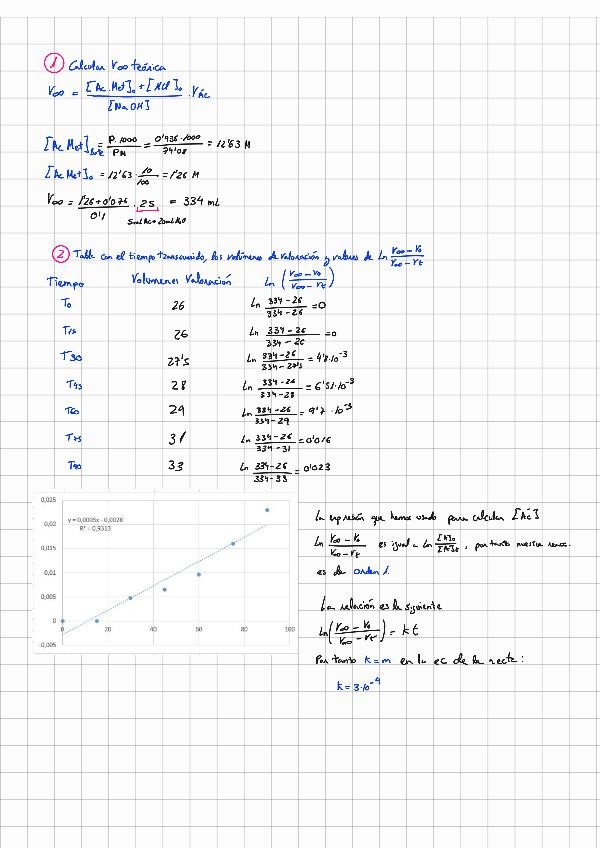 1 Calcular V∞ teórica
V∞ = [Ac.Met]₀ + [HCl]₀ / [NaOH] · VAc
[Ac Met]pure = P·1000 / PM = 0'936·1000 / 74'08 = 12'63 M
[Ac Met]₀ = 12'63 · 10/100 = 1'26 M
V∞ = 1'26 + 0'076 / 0'1 · 25 = 334 mL
5mL Ac + 20mL H₂O
2 Tabla con el tiempo transcurrido, los volúmenes de valoración y valores de Ln V∞ - V₀ / V∞ - Vt
Tiempo Volumenes Valoración Ln (V∞ - V₀ / V∞ - Vt)
T₀ 26 Ln 334-26 / 334-26 = 0
T15 26 Ln 334-26 / 334-26 = 0
T30 27'5 Ln 334-26 / 334-27'5 = 4'8·10⁻³
T45 28 Ln 334-26 / 334-28 = 6'51·10⁻³
T60 29 Ln 334-26 / 334-29 = 9'7·10⁻³
T75 31 Ln 334-26 / 334-31 = 0'016
T90 33 Ln 334-26 / 334-33 = 0'023
0,025
0,02
0,015
0,01
0,005
0
-0,005
y = 0,0003x - 0,0028
R² = 0,9313
0 20 40 60 80 100
La expresión que hemos usado para calcular [Ac]
Ln V∞ - V₀ / V∞ - Vt es igual a Ln [A]₀ / [A]t, por tanto nuestra reacc.
es de orden 1.
La relación es la siguiente
Ln (V∞ - V₀ / V∞ - Vt) = kt
Por tanto k = m en la ec de la recta:
k = 3·10⁻⁴